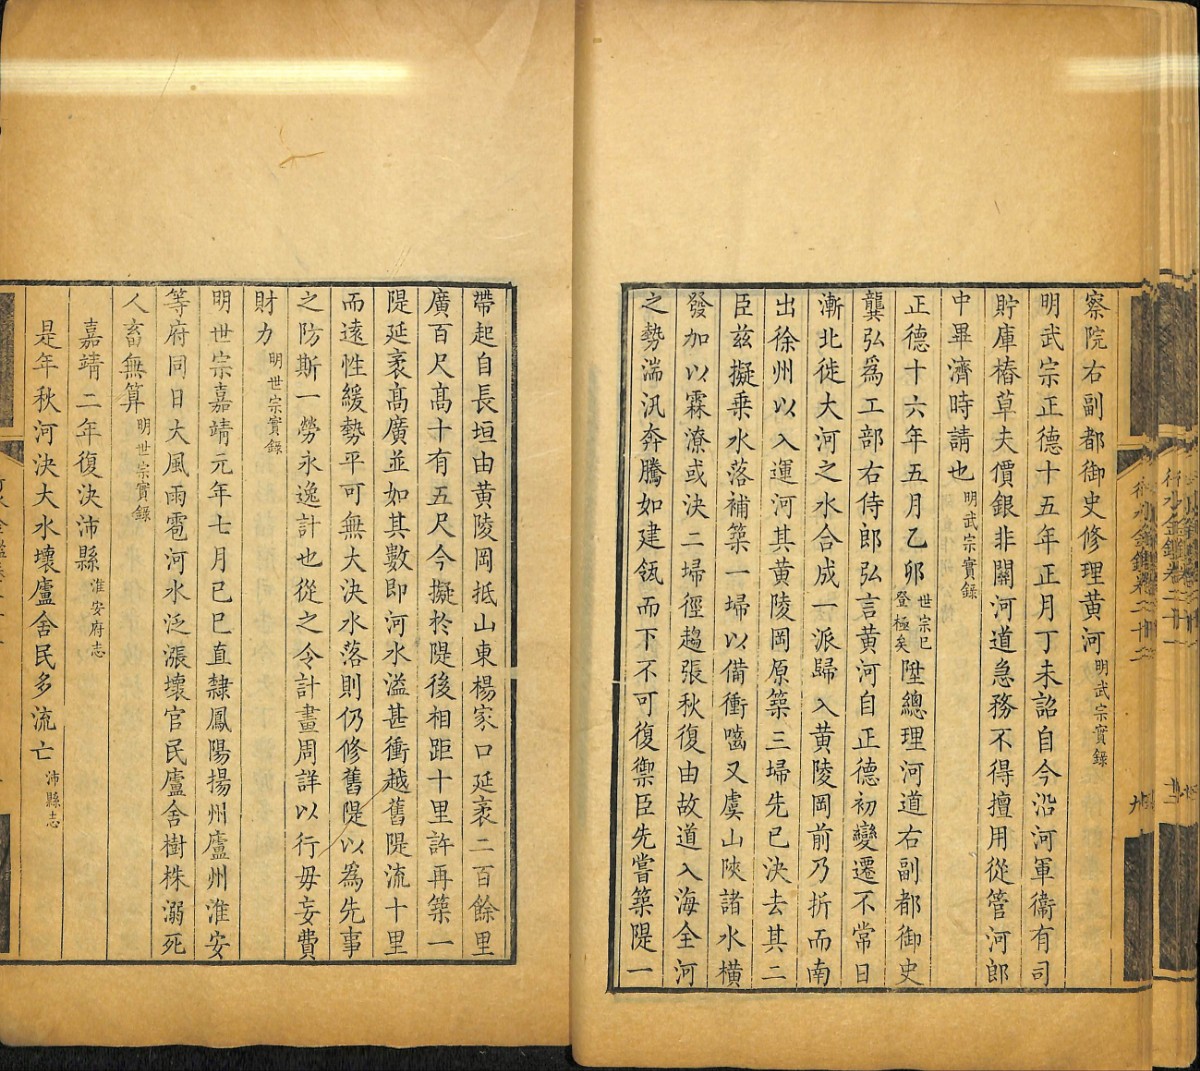 察院右副都御史修理黄河明武宗實錄
明武宗正德十五年正月丁未詔自今沿河軍衞有司
貯庫樁草夫價銀非關河道急務不得擅用從管河郎
中畢濟時請也明武宗實錄
正德十六年五月乙卯世宗已登極矣陞總理河道右副都御史
龔弘爲工部右侍郎弘言黄河自正德初變遷不常日
漸北徙大河之水合成一派歸入黄陵岡前乃折而南
出徐州以入運河其黄陵岡原築三埽先已決去其二
臣兹擬乗水落補築一埽以備衝嚙又虞山陜諸水橫
發加以霖潦或決二埽徑趨張秋復由故道入海全河
之勢湍汛奔騰如建瓴而下不可復禦臣先嘗築隄一
帶起自長垣由黄陵岡抵山東楊家口延袤二百餘里
廣百尺髙十有五尺今擬於隄後相距十里許再築一
隄延袤髙廣並如其數即河水溢甚衝越舊隄流十里
而遠性緩勢平可無大決水落則仍修舊隄以爲先事
之防斯一勞永逸計也從之令計畫周詳以行毋妄費
財力明世宗實錄
明世宗嘉靖元年七月已巳直隸鳳陽揚州廬州淮安
等府同日大風雨雹河水泛漲壞官民廬舍樹株溺死
人畜無算明世宗實錄
嘉靖二年復決沛縣淮安府志
是年秋河決大水壞廬舍民多流亡沛縣志